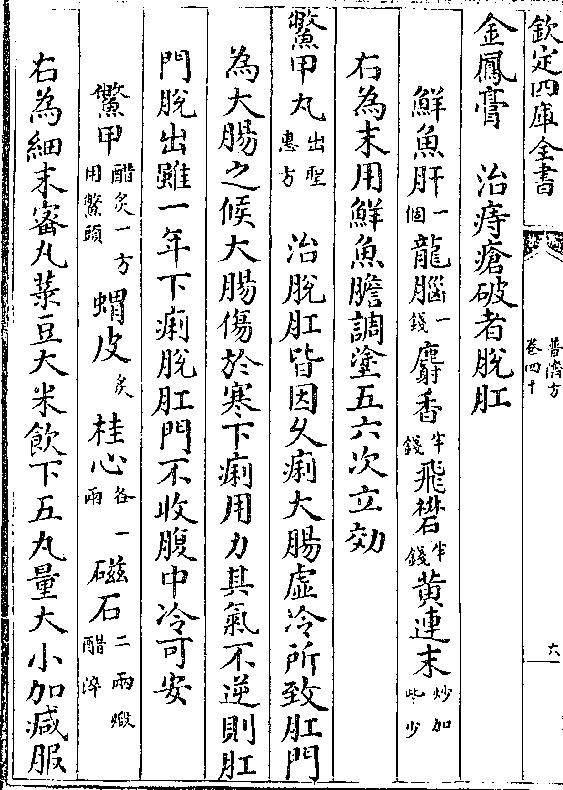 欽定四庫全書
普濟方
卷四十
六
金鳳膏　治痔瘡破者脫肛
鮮魚肝一個龍腦一錢麝香半錢飛礬半錢黃連末炒加些少
右為末用鮮魚膽調塗五六次立効
鱉甲丸出聖惠方　治脫肛皆因久痢大腸虛冷所致肛門
為大腸之候大腸傷於寒下痢用力其氣不逆則肛
門脫出雖一年下痢脫肛門不收腹中冷可安
鱉甲醋炙一方用鱉頭　蝟皮炙　桂心各一兩　磁石二兩煅醋淬
右為細末審丸菉豆大米飲下五丸量大小加減服